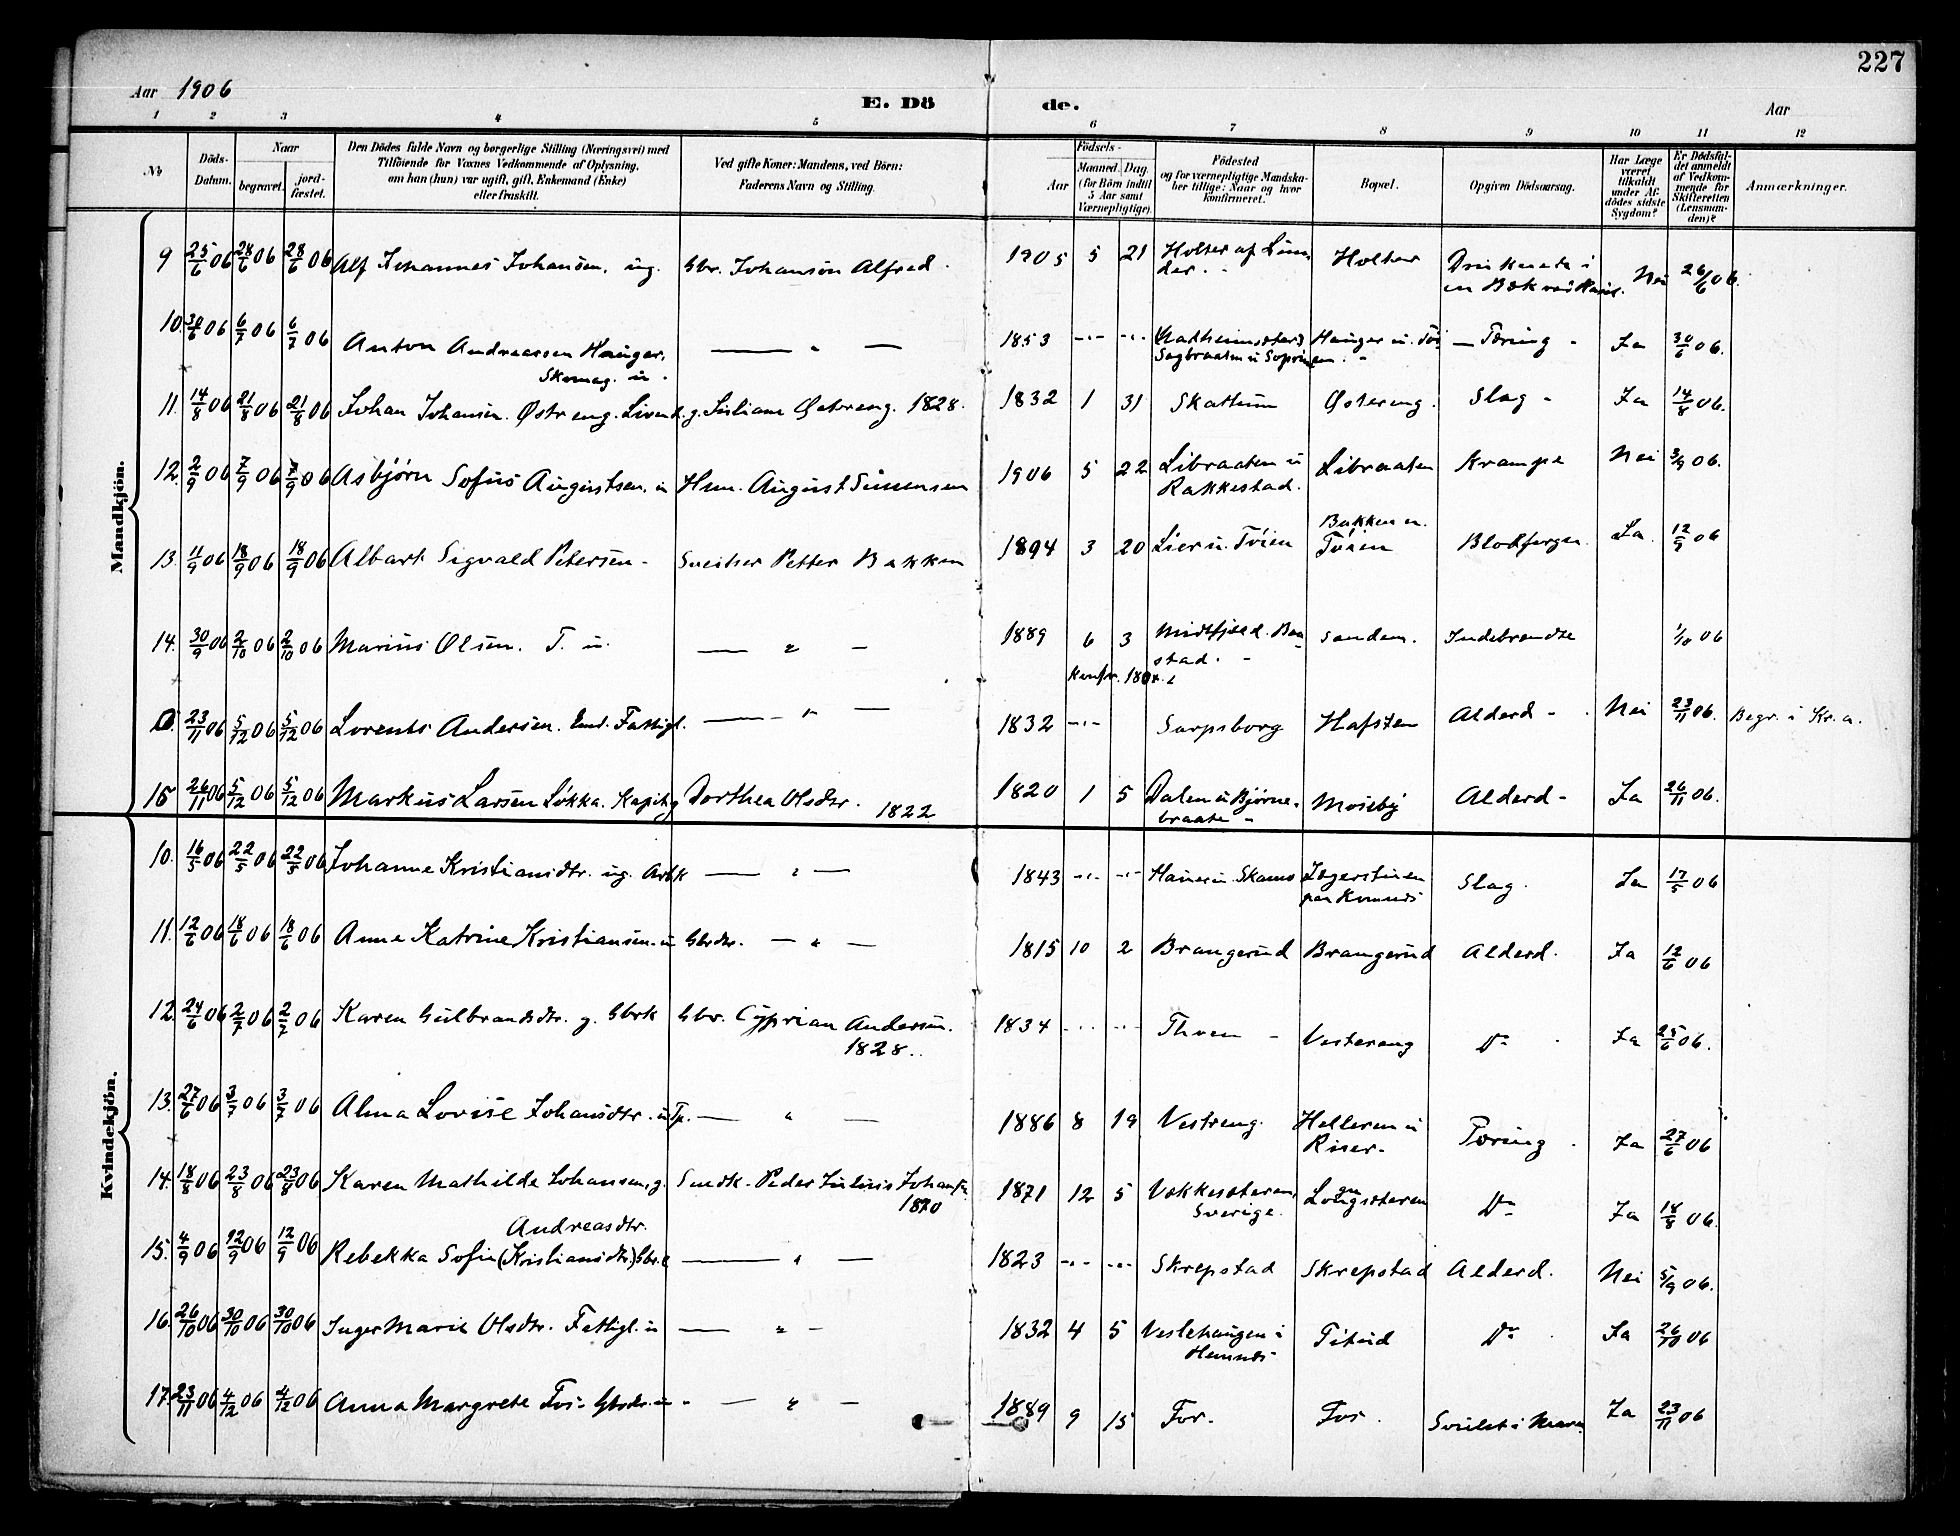 227
Aar 1906
E. Dö de.
Aar
1 2 3 4 5 6 7 8 9 10 11 12
No
Döds-Datum.
Naar
begravet.
jord-fæstet.
Den Dödes fulde Navn og borgerlige Stilling (Næringsvei) med
Tilföiende for Voxnes Vedkommende af Oplysning,
om han (hun) var ugift, gift, Enkemand (Enke)
eller fraskilt.
Ved gifte Koner: Mandens, ved Börn:
Faderens Navn og Stilling.
Födsels-
Aar
Maaned. Dag.
(for Börn indtil
5 Aar samt
Værnepligtige)
Födested
og for værnepligtige Mandska-
ber tillige: Naar og hvor
konfirmeret.
Bopæl.
Opgiven Dödsaarsag.
Har Læge
været
tilkaldt
under Af-
dödes sidste
Sygdom?
Er Dödsfal-
det anmeldt
af Vedkom-
mende for
Skifteretten
(Lensman-
den)?
Anmærkninger.
Mandkjön.
9 25/6 06 28/6 06 28/6 06 Alf Johannes Johansen. ug. Gbr. Johanson Alfred. 1905 5 21 Holter af Lun- Holter Druknede i Nei 26/6 06.
der. en Bæk ved
10. 30/6 06 6/7 06 6/7 06 Anton Andreassen Hauger. — " — 1853 -"- -"- Hauger u. Tæring - Ja 30/6 06.
Skomag. u. Sagbraaten u
11. 14/8 06 21/8 06 21/8 06 Johan Johansen. Østreng. g. Østreng. 1828. 1832 1 31 Skattum Østereng. Slag - Ja 14/8 06.
12. 2/9 06 7/9 06 7/9 06 Asbjørn Sofus Augustsen. u Hm. August Simensen 1906 5 22 Libraaten u Libraaten Krampe Nei 3/9 06.
Rakkestad.
13. 11/9 06 18/9 06 18/9 06 Albert Sigvald Petersen - Sveitser Petter Bakken 1894 3 20 Lier u. Tóien Bakken u. Blodforgn. Ja. 12/9 06
Tóien
14. 30/9 06 2/10 06 2/10 06 Marius Olsen. T. u. — " — 1889 6 3 Midtfjeld. Baa- Sanden. Indebrændte 1/10 06
stad. -
Konfir.
15. 23/11 06 5/12 06 5/12 06 Lorents Andersen. Enk. Fattigl. — " — 1832 -"- Sarpsborg Hafsten Alderd - Nei 23/11 06. Begr. i Kr.a.
16 26/11 06 5/12 06 5/12 06 Markus Larsen Løkka. Kapit. g Dorthea Olsdtr. 1822 1820 1 5 Dalen u Bjørne- Moseby Alderd - Ja 26/11 06.
braaten -
Kvindekjön.
10. 16/5 06 22/5 06 22/5 06 Johanne Kristiansdtr. ug. Arbk — " — 1843 -"- -"- Slag. Ja 17/5 06
11. 12/6 06 18/6 06 18/6 06 Anne Katrine Kristiansen. u Gbrdtr. — " — 1815 10 2 Brangerud Brangerud Alderd. Ja 12/6 06
12 24/6 06 2/7 06 2/7 06 Karen Gulbrandsdtr. g. Gbrk Gbr. Cyprian Andersen. 1834 -"- -"- Thven - Vestereng Do Ja 25/6 06.
1828.
13. 27/6 06 3/7 06 3/7 06 Alma Lovise Johansdtr. u Tp. — " — 1886 8 19 Vestreng. Helleren u Tæring. Ja 27/6 06
Riser-
14. 18/8 06 23/8 06 23/8 06 Karen Mathilde Johansen, g. Smedk. Peder Julius Johansen 1871 12 5 Do Ja 18/8 06.
1870 Sverige.
Andreasdtr.
15. 4/9 06 12/9 06 12/9 06 Rebekka Sofie (Kristiansdtr) Gbr.e — " — 1823 -"- -"- Skrepstad Skrepstad Alderd. Nei 5/9 06.
16. 26/10 06 30/10 06 30/10 06 Inger Marie Olsdtr. Fattigl. u — " — 1832 4 5 Veslehaugen i Titud Do Ja 26/10 06
Hemnes-
17. 23/11 06 4/12 06 4/12 06 Anna Margrete Fos. Gbrdtr. u - — " — 1889 9 15 Fos. Fos. Svulst i Maven Ja 23/11 06